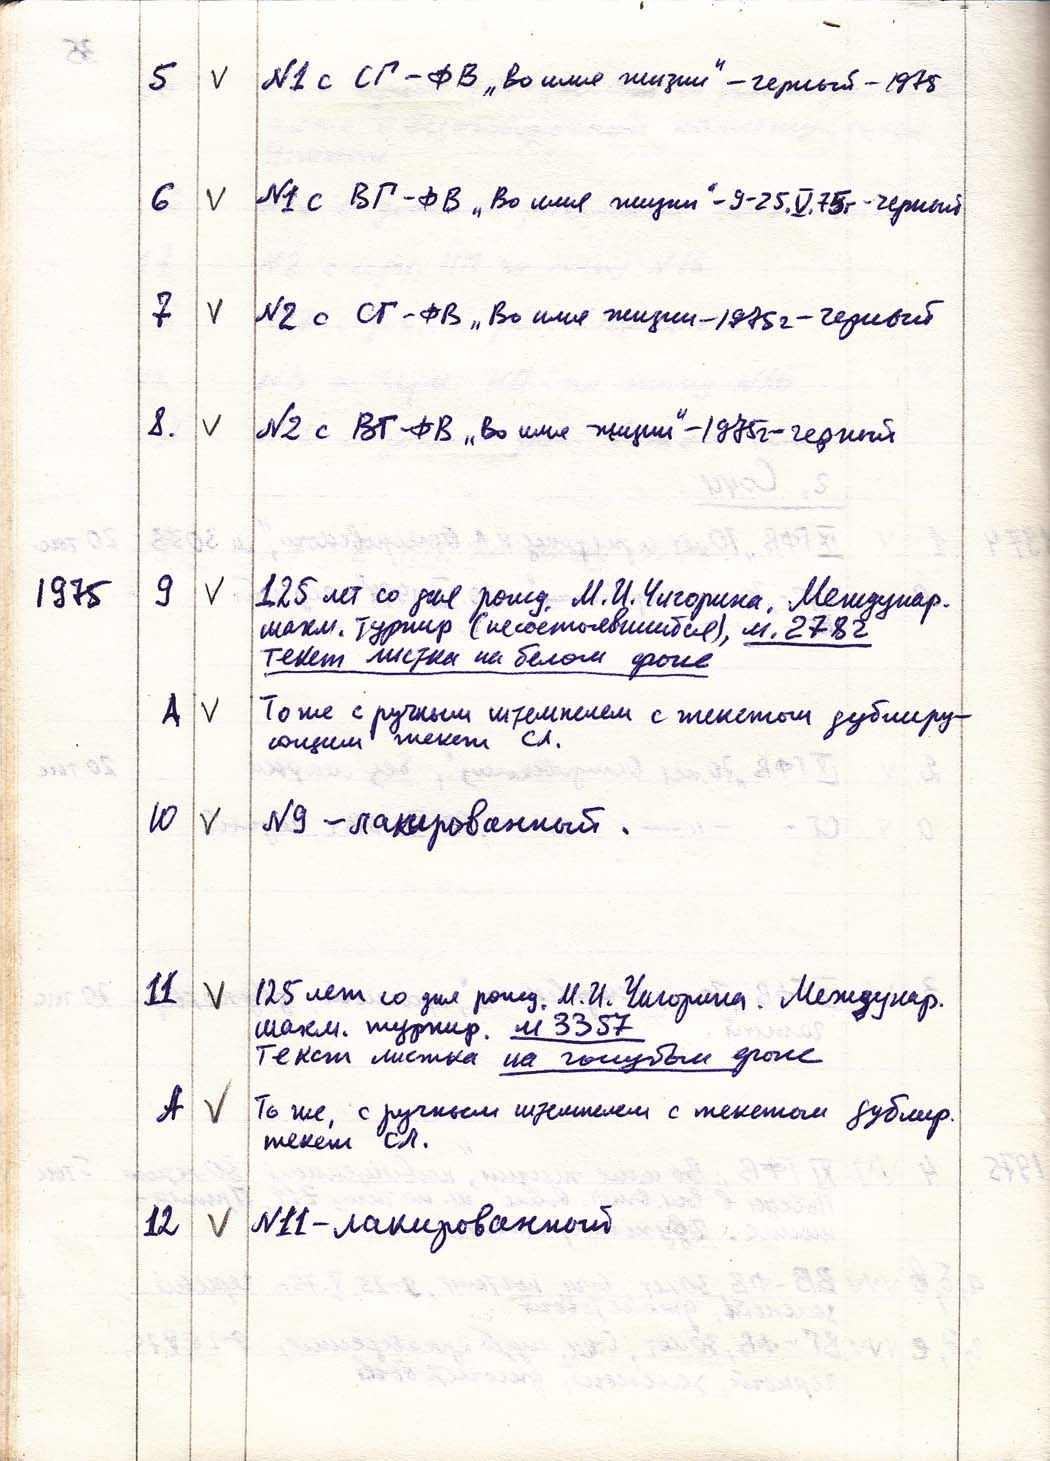 5 V N1 с СГ-ФВ „Во имя жизни" - черный - 1975
6 V N1 с ВГ-ФВ „Во имя жизни" - 9-25.V.75г - черный
7 V N2 с СГ-ФВ „Во имя жизни - 1975г - черный
8. V N2 с ВГ-ФВ „Во имя жизни" - 1975г - черный
1975 9 V 125 лет со дня рожд. М.И.Чигорина. Междунар.
шахм. турнир (несостоявшийся), м. 2782
текст листка на белом фоне
А V То же с ручным штемпелем с текстом дублиру-
ющим текст СЛ.
10 V N9 - лакированный.
11 V 125 лет со дня рожд. М.И. Чигорина. Междунар.
шахм. турнир. м 3357
Текст листка на голубом фоне
А V То же, с ручным штемпелем с текстом дублир.
текст СЛ.
12 V N11 - лакированный